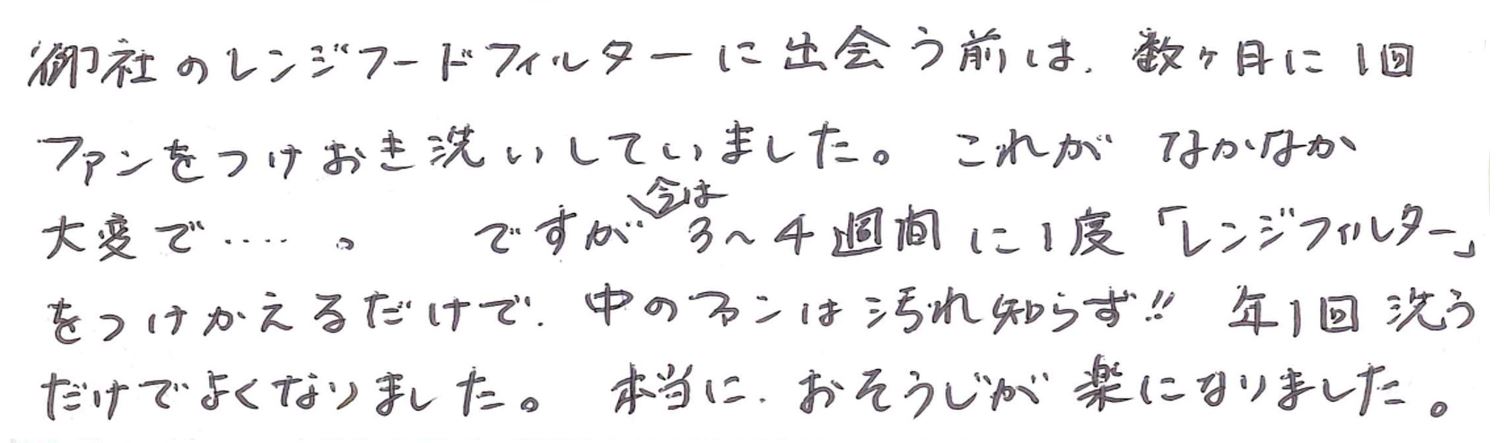 御社のレンジフードフィルターに出会う前は、数ヶ月に1回
ファンをつけおき洗いしていました。これがなかなか
大変で‥‥‥。ですが今は3～4週間に1度「レンジフィルター」
をつけかえるだけで、中のファンは汚れ知らず!! 年1回洗う
だけでよくなりました。本当に、おそうじが楽になりました。